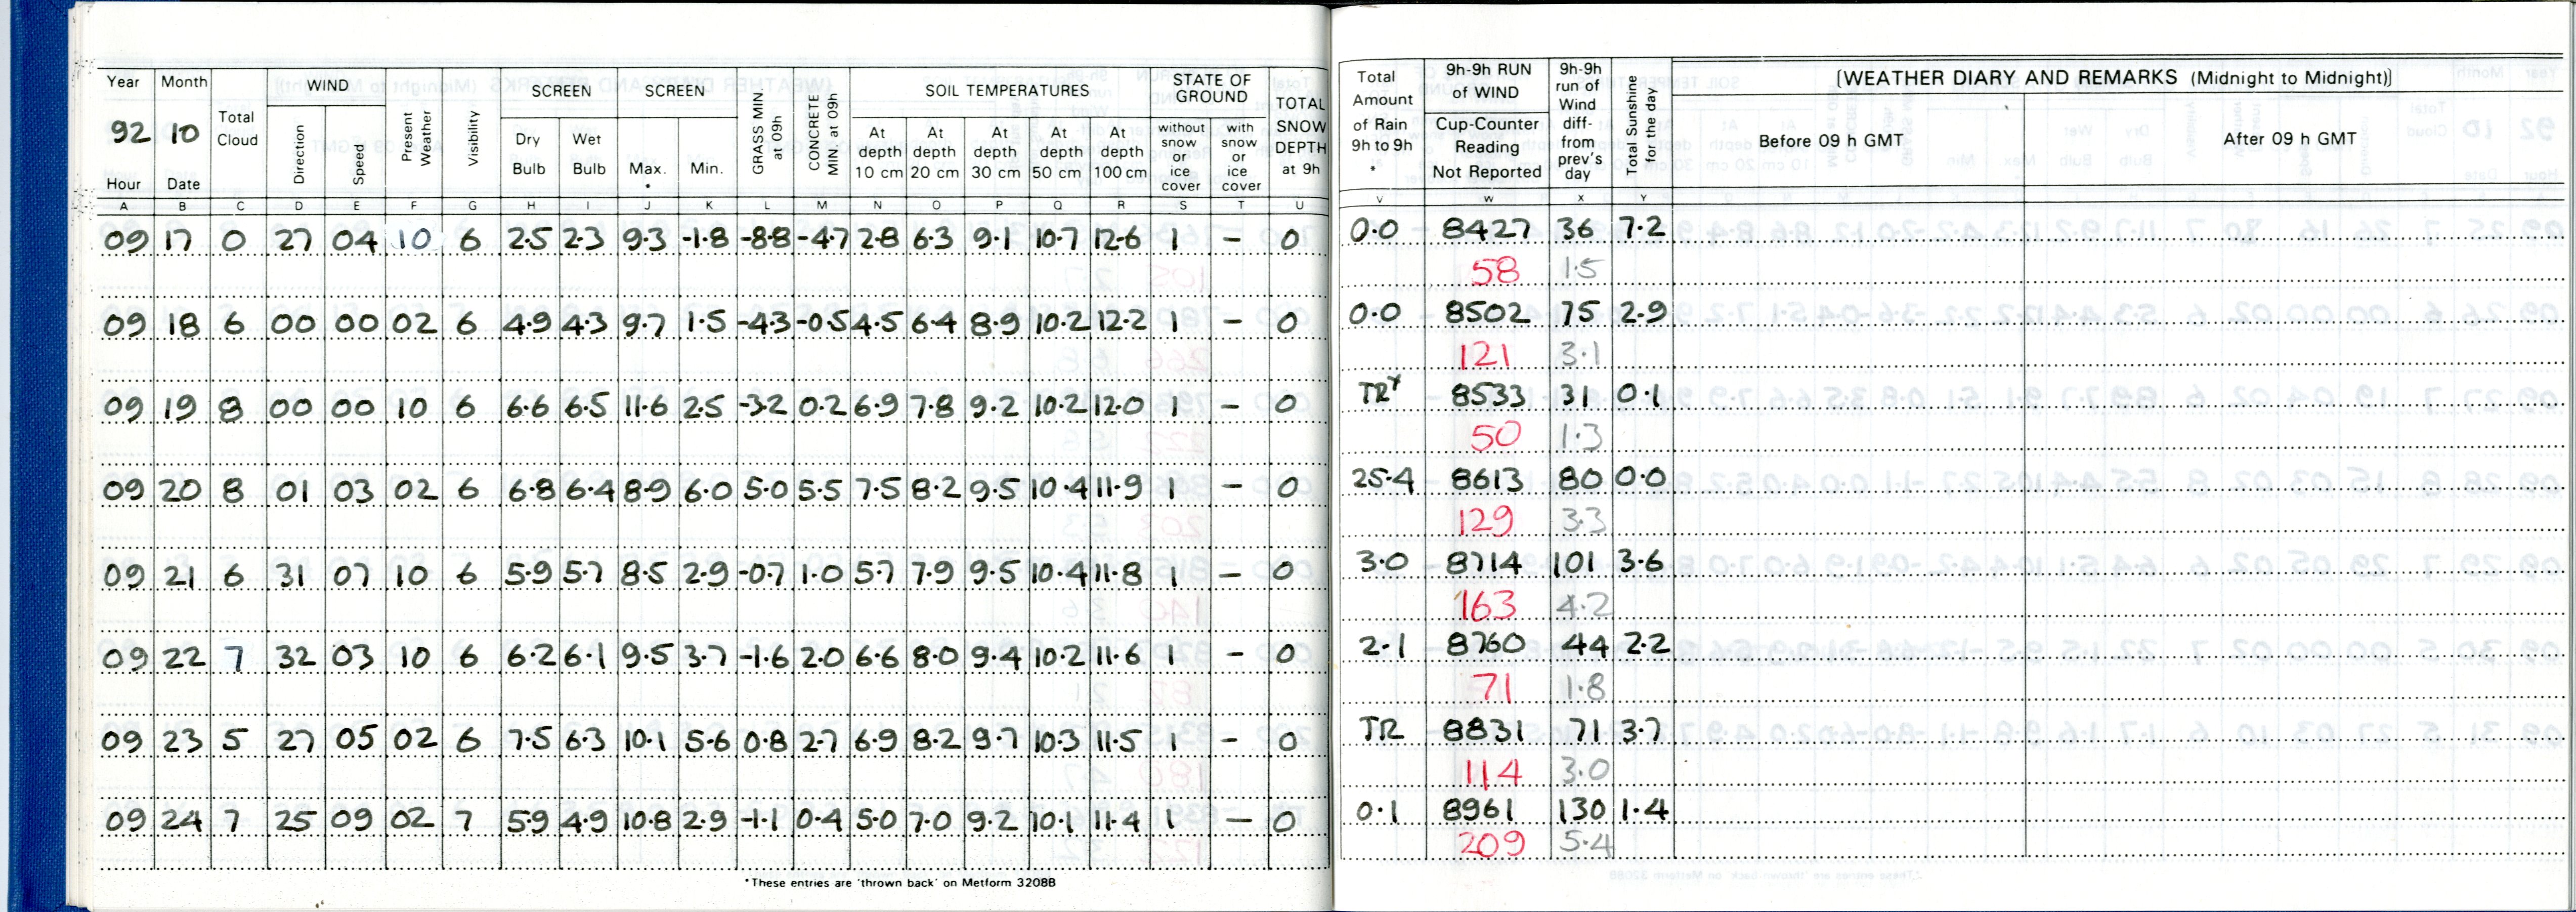 Year Month Total Cloud WIND Present Weather Visibility SCREEN SCREEN GRASS MIN at 09h CONCRETE MIN. at 09h SOIL TEMPERATURES STATE OF GROUND TOTAL SNOW DEPTH at 9h Total Amount of Rain 9h to 9h * 9h-9h RUN of WIND Cup-Counter Reading Not Reported 9h-9h run of Wind diff- from prev's day Total Sunshine for the day [WEATHER DIARY AND REMARKS (Midnight to Midnight)]
92 10 Direction Speed Dry Bulb Wet Bulb Max. * Min. At depth 10 cm At depth 20 cm At depth 30 cm At depth 50 cm At depth 100 cm without snow or ice cover with snow or ice cover Before 09 h GMT After 09 h GMT
Hour Date
A B C D E F G H I J K L M N O P Q R S T U V W X Y
09 17 0 27 04 10 6 2.5 2.3 9.3 -1.8 -8.8 -4.7 2.8 6.3 9.1 10.7 12.6 1 – 0 0.0 8427 36 7.2
58 1.5
09 18 6 00 00 02 6 4.9 4.3 9.7 1.5 -4.3 -0.5 4.5 6.4 8.9 10.2 12.2 1 – 0 0.0 8502 75 2.9
121 3.1
09 19 8 00 00 10 6 6.6 6.5 11.6 2.5 -3.2 0.2 6.9 7.8 9.2 10.2 12.0 1 – 0 TR 8533 31 0.1
50 1.3
09 20 8 01 03 02 6 6.8 6.4 8.9 6.0 5.0 5.5 7.5 8.2 9.5 10.4 11.9 1 – 0 25.4 8613 80 0.0
129 3.3
09 21 6 31 07 10 6 5.9 5.7 8.5 2.9 -0.7 1.0 5.7 7.9 9.5 10.4 11.8 1 – 0 3.0 8714 101 3.6
163 4.2
09 22 7 32 03 10 6 6.2 6.1 9.5 3.7 -1.6 2.0 6.6 8.0 9.4 10.2 11.6 1 – 0 2.1 8760 44 2.2
71 1.8
09 23 5 27 05 02 6 7.5 6.3 10.1 5.6 0.8 2.7 6.9 8.2 9.7 10.3 11.5 1 – 0 TR 8831 71 3.7
114 3.0
09 24 7 25 09 02 7 5.9 4.9 10.8 2.9 -1.1 0.4 5.0 7.0 9.2 10.1 11.4 1 – 0 0.1 8961 130 1.4
209 5.4
*These entries are 'thrown back' on Metform 3208B